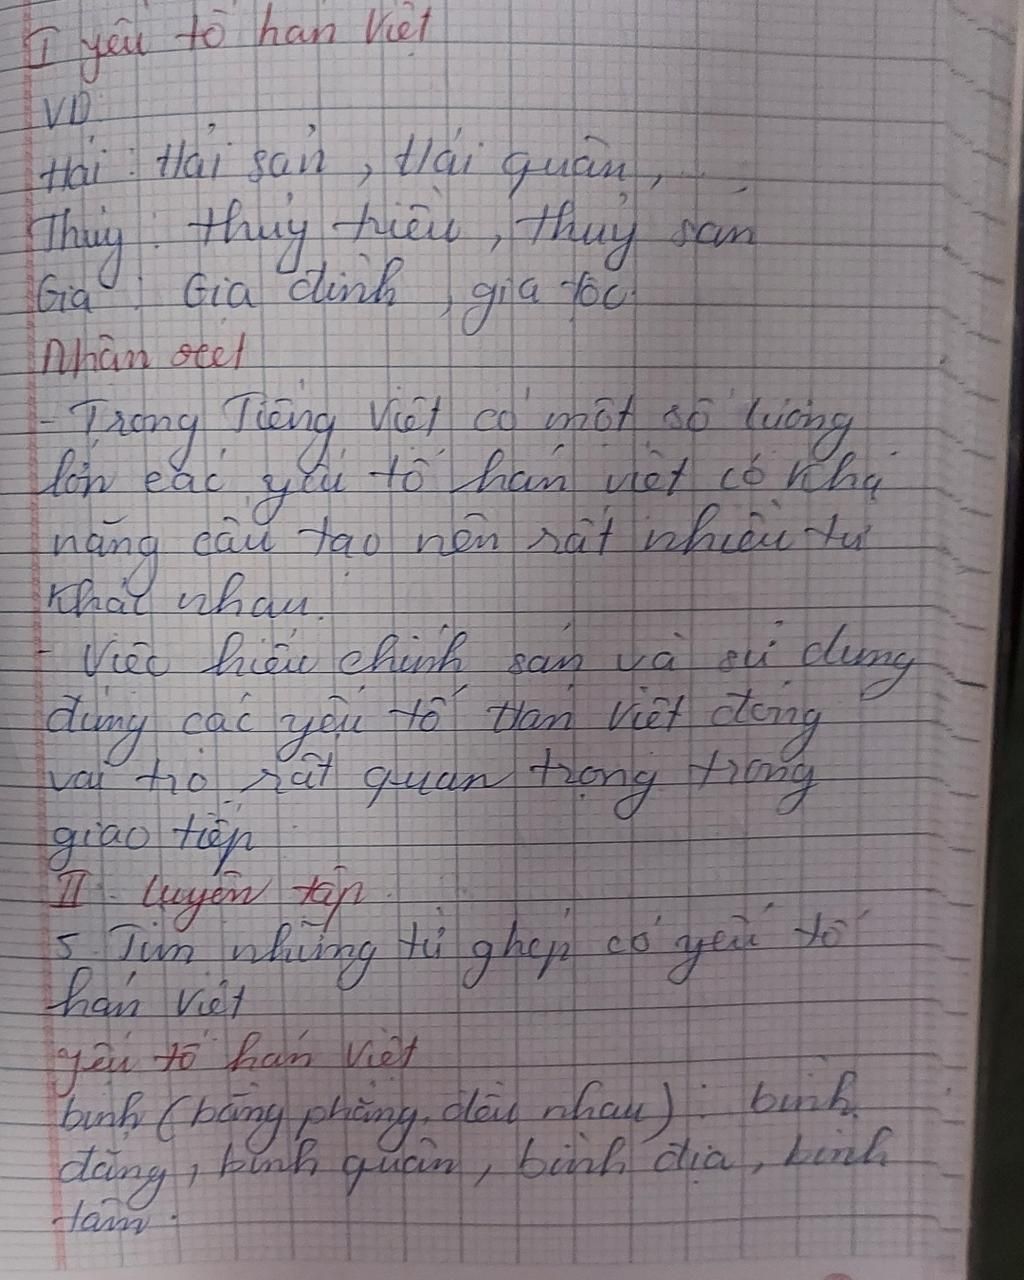 I yếu tố hán Việt
VD:
Hải: Hải sản, Hải quân,
Thủy: thủy triều, thủy sản
Gia: Gia đình, gia tộc.
Nhận xét
- Trong Tiếng Việt có một số lượng
lớn các yếu tố hán việt có khả
năng cấu tạo nên rất nhiều từ
khác nhau.
- Việc hiểu chính sản và sử dụng
đúng các yếu tố Hán Việt đóng
vai trò rất quan trọng trong
giao tiếp
II. Luyện tập.
5. Tìm những từ ghép có yếu tố
hán Việt
yếu tố hán Việt
bình (bằng phẳng, đều nhau): bình
đẳng, bình quân, bình địa, bình
tâm.